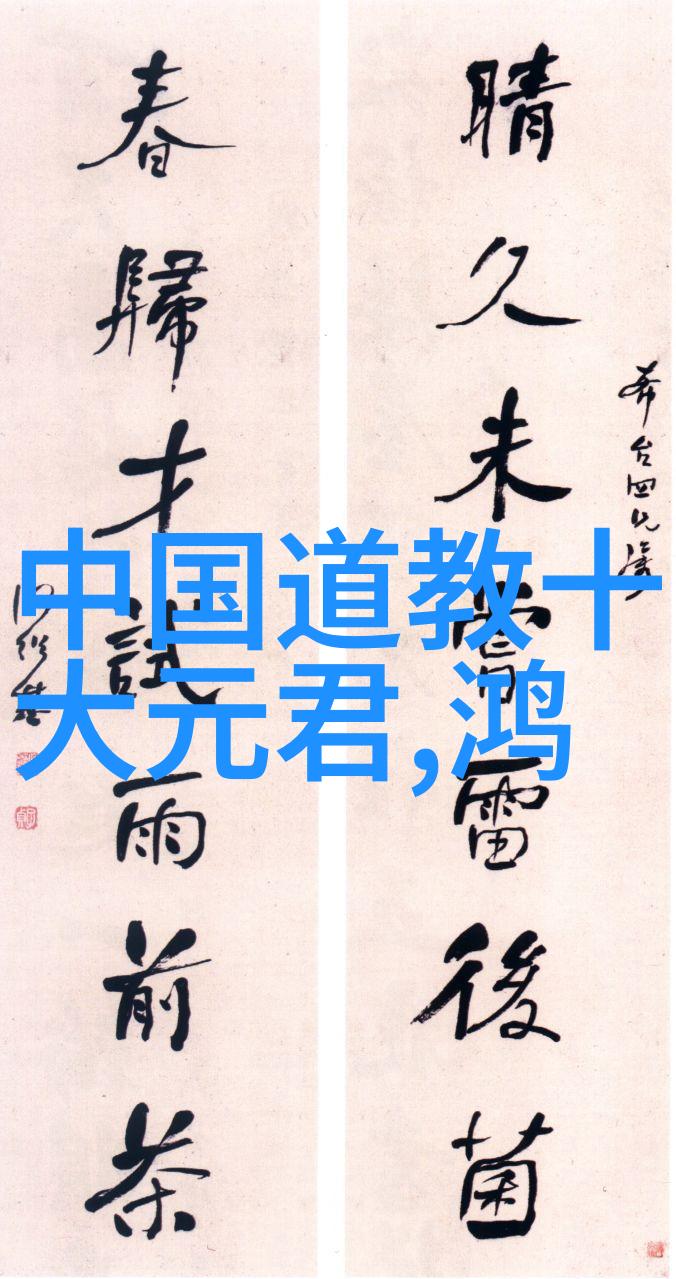 晴久未嘗雷後菌
春歸才試雨前茶
中国道教十
大元君,鸿